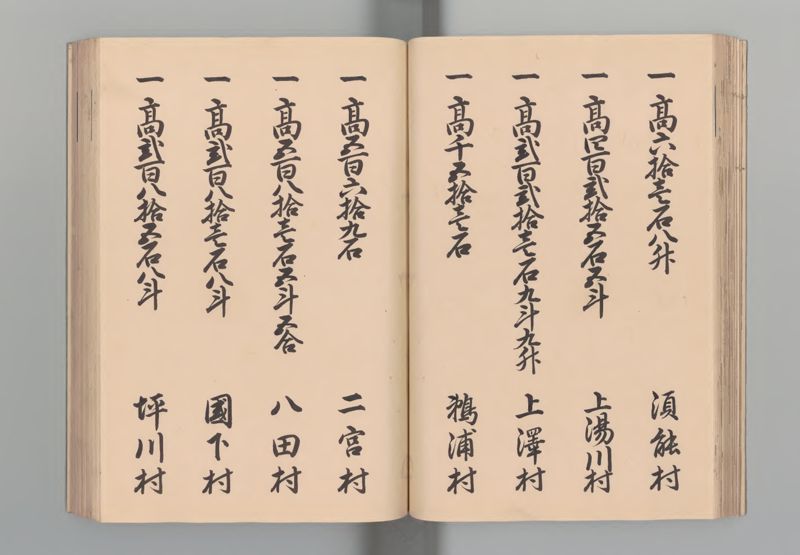 一高六拾壱石八升 須能村
一高四百弐拾五石五斗 上湯川村
一高弐百弐拾壱石九斗九升 上澤村
一高千五拾壱石 鵜浦村
一高五百六拾九石 二宮村
一高五百八拾壱石五斗五合 八田村
一高弐百八拾壱石八斗 國下村
一高弐百八拾五石八斗 坪川村